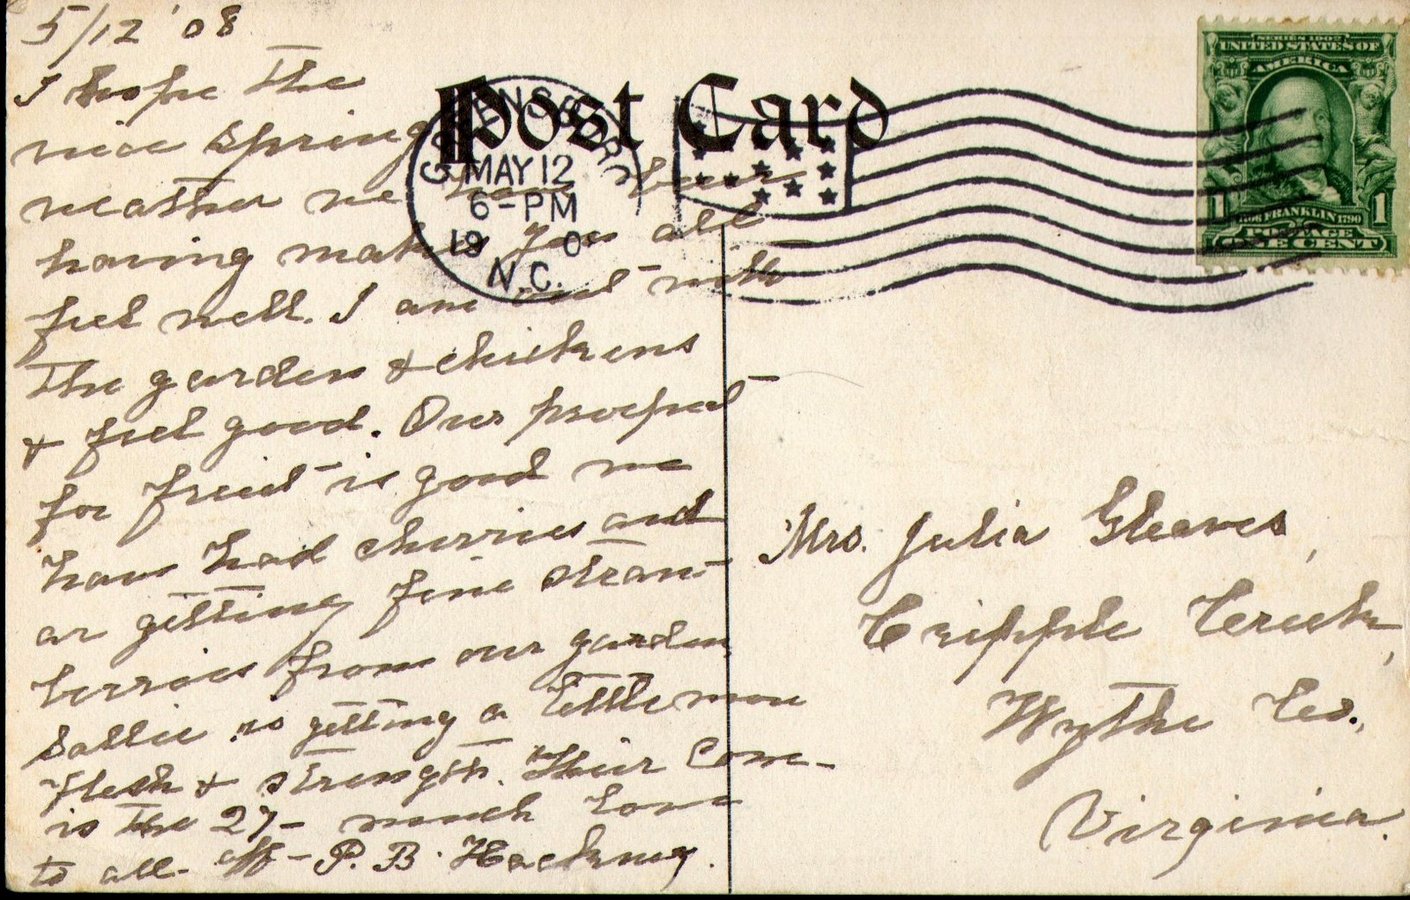 5/12 '08
I hope the
nice spring
weather we have been
having makes you all
feel well. I am out with
the garden & chickens
& feel good. Our prospect
for fruit is good we
have had cherries and
ar getting fine straw-
berries from our garden
Sallie is getting a little more
flesh & strength. Their Com-
is the 27- much love
to all- P. B. Hackney.
Post Card
GREENSBORO
MAY 12
6-PM
19 0
N.C.
SERIES 1902
UNITED STATES OF
AMERICA
1 1706 FRANKLIN 1790 1
POSTAGE
ONE CENT
Mrs. Julia Gleaves,
Cripple Creek,
Wythe Co.,
Virginia.